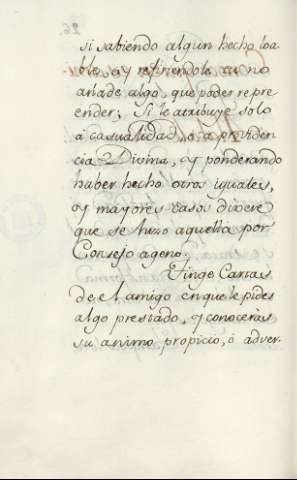 si sabiendo algun hecho loa-
ble, y refiriendole tu no
añade algo, que poder repre-
ender; Si le atribuye solo
a casualidad, o a providen
cia Divina, y ponderando
haber hecho otros iguales,
y mayores casos dixere
que se hizo aquello por
Consejo ageno.
Finge Cartas
de el amigo en que le pides
algo prestado, y conoceràs
su animo propicio, ò adver-